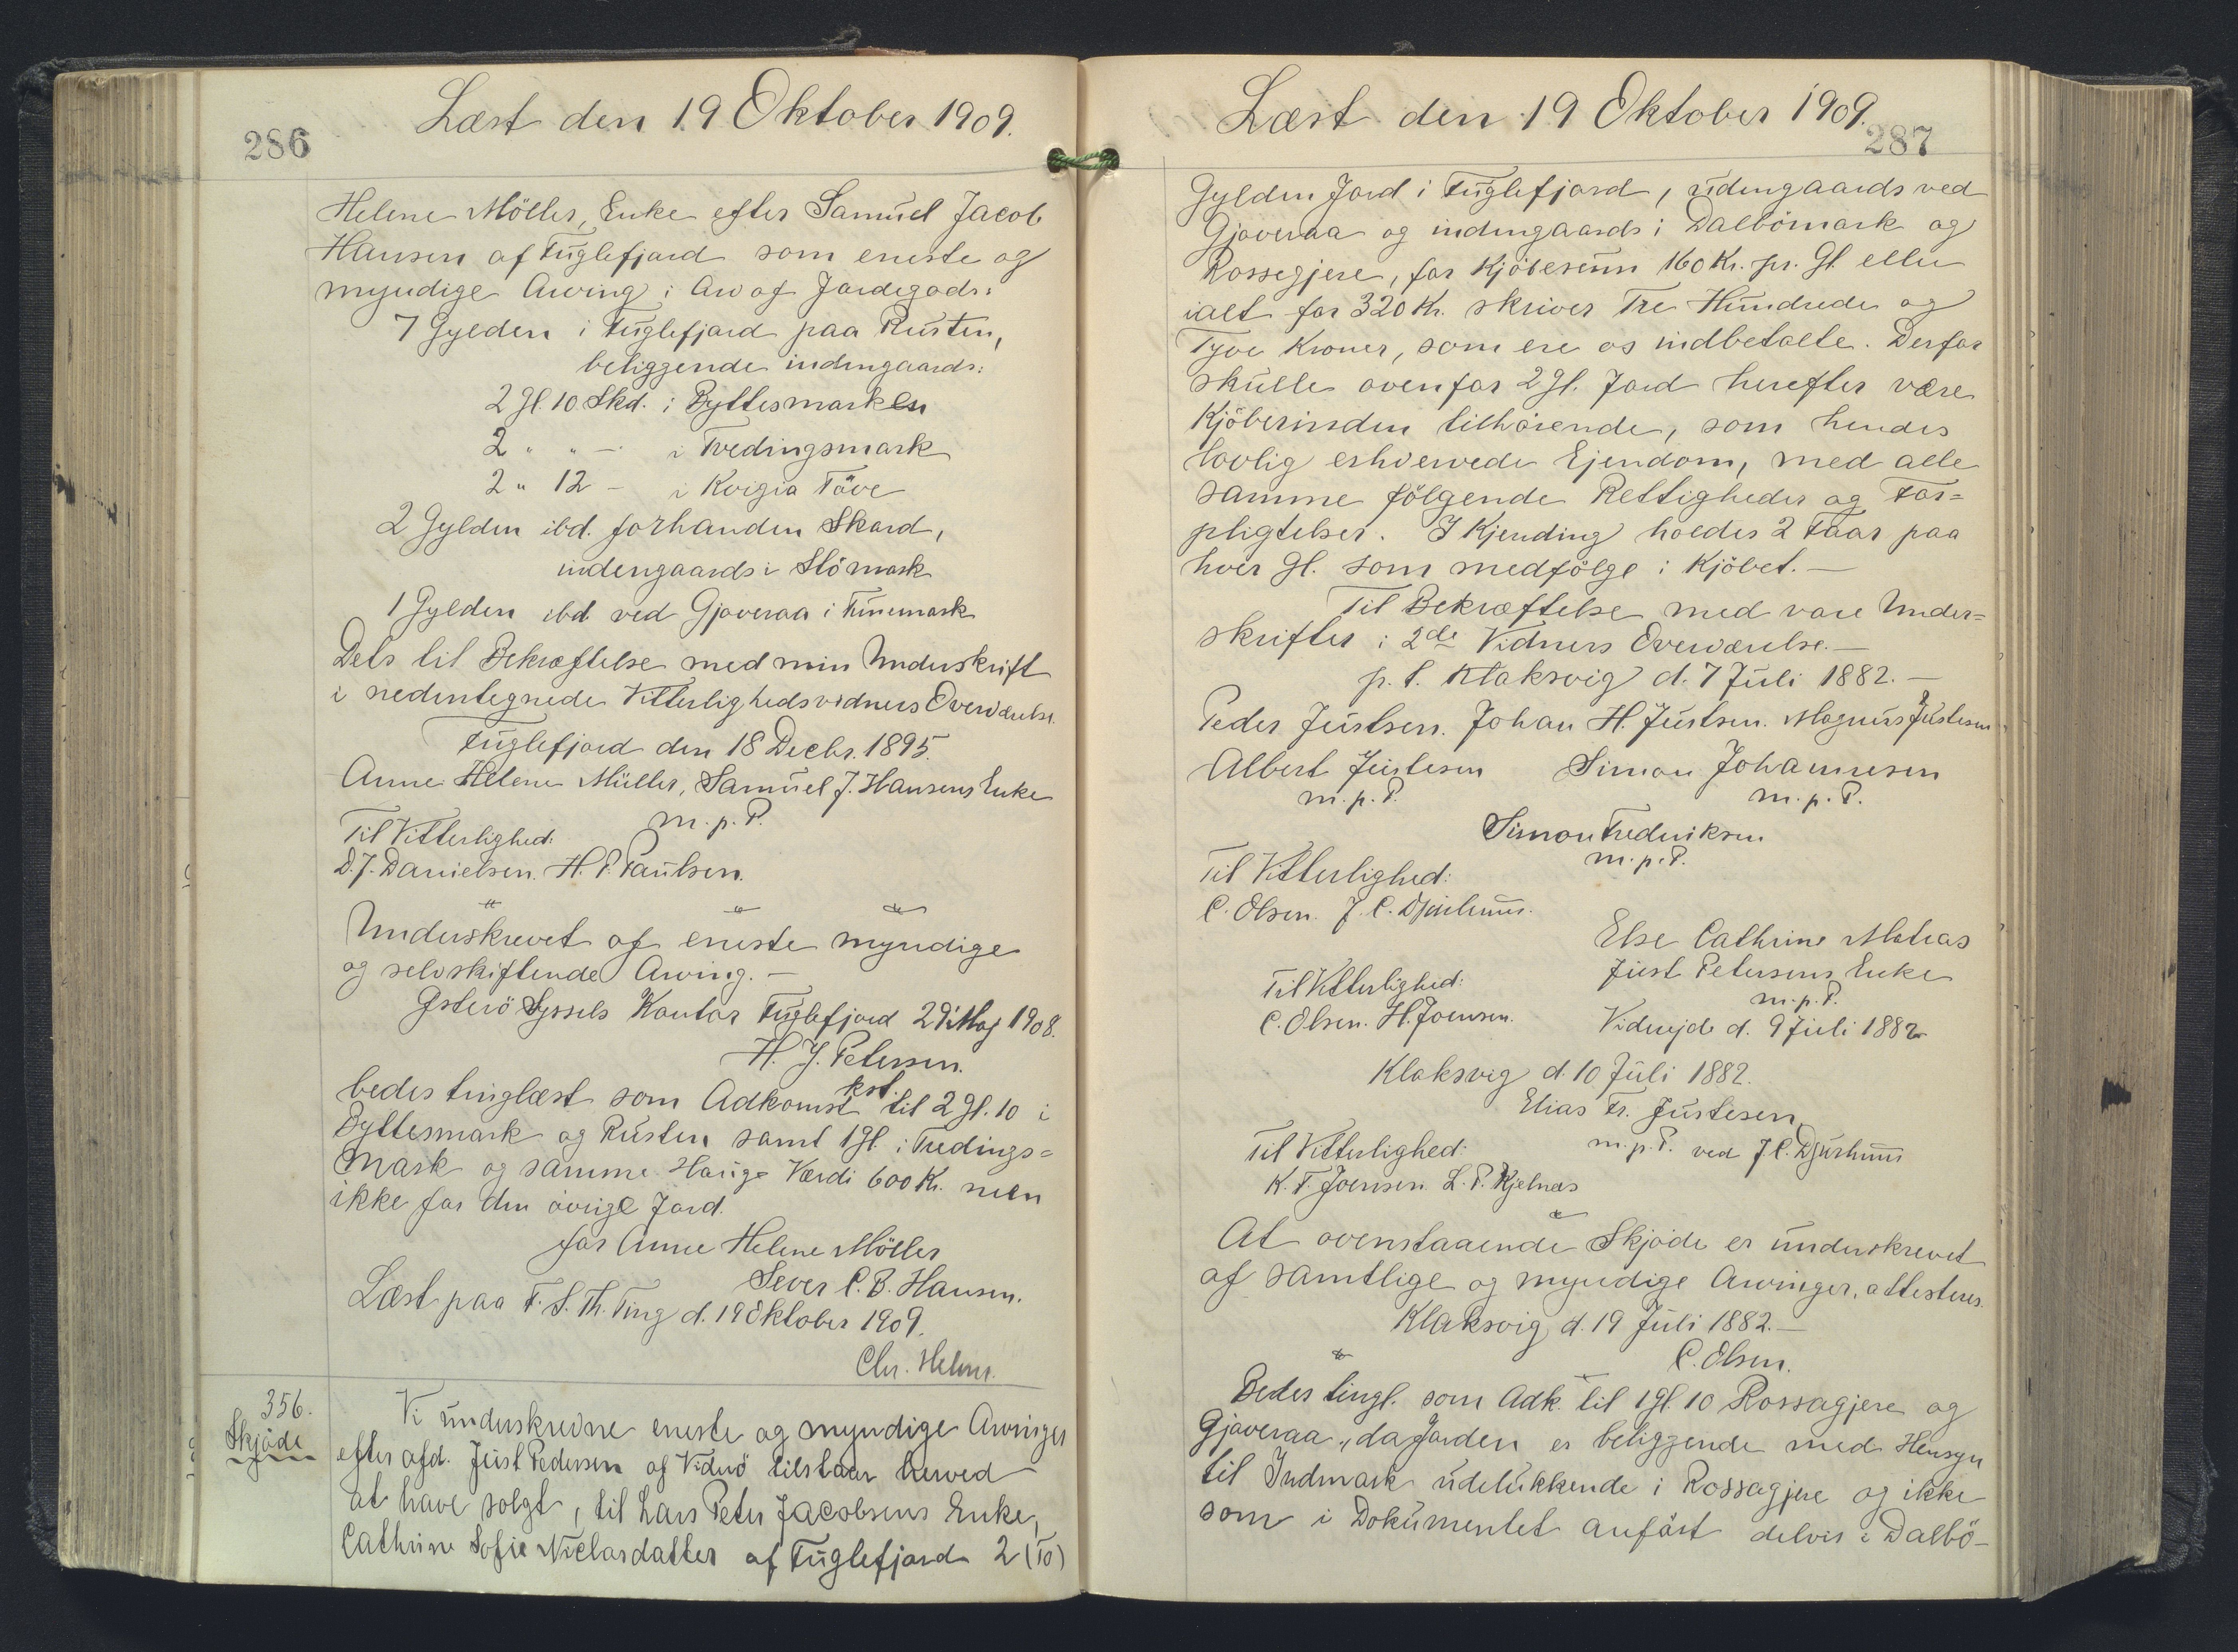 Læst den 19 Oktober 1909.
286
Helene Möller, Enke efter Samuel Jacob
Hansen af Fuglefjord som eneste og
myndige Arving i Arv af Jordegods:
7 Gylden i Fuglefjord paa Rusten,
beliggende indengaards:
2 Gl. 10 Skd. i Byttesmarken
2 " " - i Tredingsmark
2 " 12 - i Kvigia Töve
2 Gylden ibd. forhanden Skard,
indengaards i Slömark
1 Gylden ibd ved Gjoveraa i Tunemark
Dets til Bekræftelse med min Underskrift
i nedentegnede Vitterlighedsvidners Overværelse.
Fuglefjord den 18 Decbr. 1895.
Anne Helene Müller, Samuel J. Hansens Enke
m. p. P.
Til Vitterlighed:
D. J. Danielsen. H. P. Paulsen.
Underskrevet af eneste myndige
og selvskiftende Arving. -
Østerö Syssels Kontor Fuglefjord 29 Maj 1908.
H. J. Petersen.
bedes tinglæst som Adkomst kst. til 2 Gl. 10 i
Byttesmark og Rusten samt 1 Gl. i Tredings=
mark og samme Hauge Værdi 600 Kr. men
ikke for den övrige Jord.
for Anne Helene Möller
Sever C. B. Hansen.
Læst paa F. S. Th. Ting d. 19 Oktober 1909.
Chr. Helms.
356.
Skjöde
Vi underskrevne eneste og myndige Arvinger
efter afd. Just Pedersen af Viderö tilstaar herved
at have solgt, til Lars Peter Jacobsens Enke,
Cathrine Sofie Niclasdatter af Fuglefjord 2 (To)
Læst den 19 Oktober 1909.
287
Gylden Jord i Fuglefjord, udengaards ved
Gjoveraa og indengaards i Dalbömark og
Rossegjere, for Kjöbesum 160 Kr. pr. Gl. eller
ialt for 320 Kr. skriver Tre Hundrede og
Tyve Kroner, som ere os indbetalte. Derfor
skulle ovenfor 2 Gl. Jord herefter være
Kjöberinden tilhörende, som hendes
lovlig erhvervede Ejendom, med alle
samme fölgende Rettigheder og For=
pligtelser. I Kjending holdes 2 Faar paa
hver Gl. som medfölge i Kjöbet. -
Til Bekræftelse med vore Under=
skrifter i 2de Vidners Overværelse. -
p. t. Klaksvig d. 7 Juli 1882. -
Peder Justsen. Johan H. Justsen. Magnus Justesen
Albert Justesen Simon Johannesen
m. p. P. m. p. P.
Simon Fredriksen
m. p. P.
Til Vitterlighed:
C. Olsen. J. C. Djurhuus.
Else Cathrine Matias
Just Petersens Enke
m. p. P.
Til Vitterlighed:
C. Olsen. H. Joensen.
Viderejde d. 9 Juli 1882
Klaksvig d. 10 Juli 1882.
Elias Fr. Justesen
m. p. P. ved J. C. Djurhuus
Til Vitterlighed:
K. F. Joensen. L. P. Kjelnæs
At ovenstaaende Skjöde er underskrevet
af samtlige og myndige Arvinger, attesteres.
Klaksvig d. 19 Juli 1882. -
C. Olsen.
Bedes tingl. som Adk. til 1 Gl. 10 Rossagjere og
Gjoveraa, da Jorden er beliggende med Hensyn
til Indmark udelukkende i Rossagjere og ikke
som i Dokumentet anfört delvis i Dalbö-